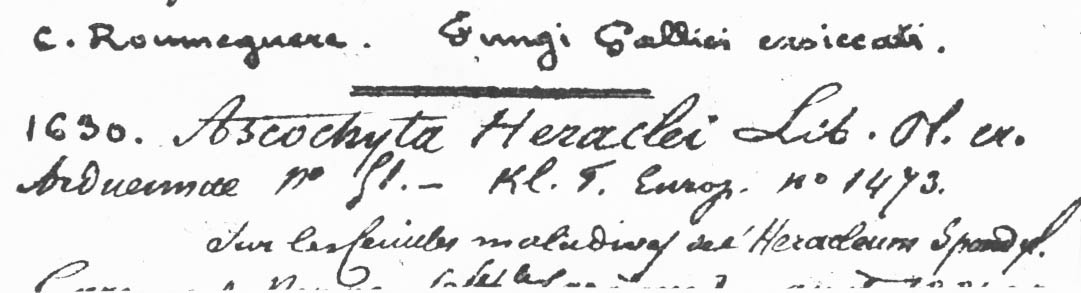 C. Roumeguere. Fungi Gallici exsiccati.
1630. Ascochyta Heraclei Lib. Pl. cr.
Arduennae no 51. – Kl. F. Europ. no 1473.
Sur les feuilles maladives de l'Heracleum Spondyl.